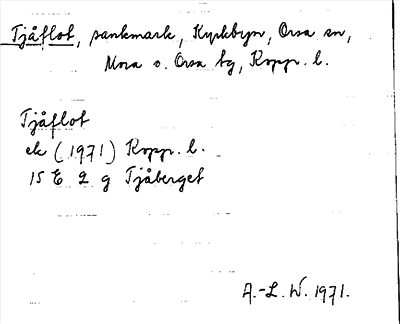 Tjåflot, sankmark, Kyrkbyn, Orsa sn,
Mora o. Orsa tg, Kopp. l.
Tjåflot
ek (1971) Kopp. l.
15 E 2 g Tjåberget
A.-L. W. 1971.